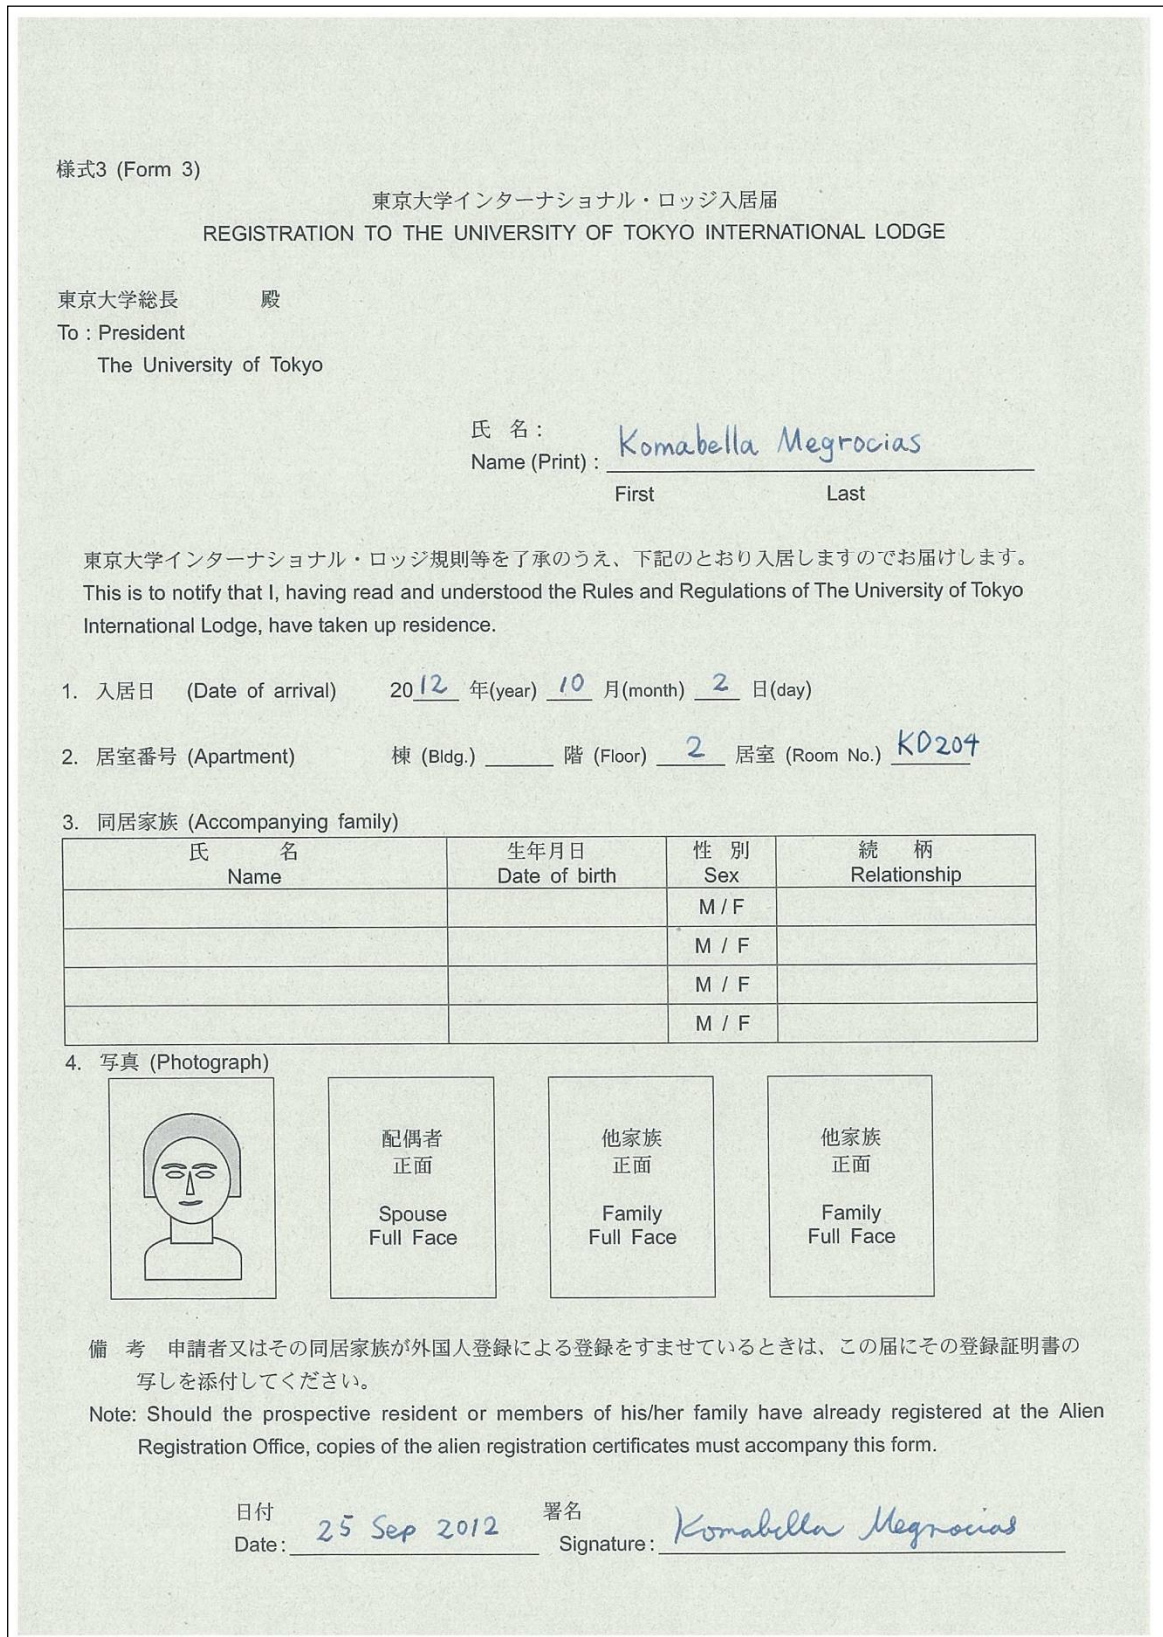 様式3 (Form 3)
東京大学インターナショナル・ロッジ入居届
REGISTRATION TO THE UNIVERSITY OF TOKYO INTERNATIONAL LODGE
東京大学総長 殿
To : President
The University of Tokyo
氏 名 :
Name (Print) : Komabella Megrocias
First Last
東京大学インターナショナル・ロッジ規則等を了承のうえ、下記のとおり入居しますのでお届けします。
This is to notify that I, having read and understood the Rules and Regulations of The University of Tokyo
International Lodge, have taken up residence.
1. 入居日 (Date of arrival) 2012 年(year) 10 月(month) 2 日(day)
2. 居室番号 (Apartment) 棟 (Bldg.) ______ 階 (Floor) 2 居室 (Room No.) KD204
3. 同居家族 (Accompanying family)
氏 名 生年月日 性 別 続 柄
Name Date of birth Sex Relationship
M / F
M / F
M / F
M / F
4. 写真 (Photograph)
配偶者 他家族 他家族
正面 正面 正面
Spouse Family Family
Full Face Full Face Full Face
備 考 申請者又はその同居家族が外国人登録による登録をすませているときは、この届にその登録証明書の
写しを添付してください。
Note: Should the prospective resident or members of his/her family have already registered at the Alien
Registration Office, copies of the alien registration certificates must accompany this form.
日付 署名
Date: 25 Sep 2012 Signature: Komabella Megrocias